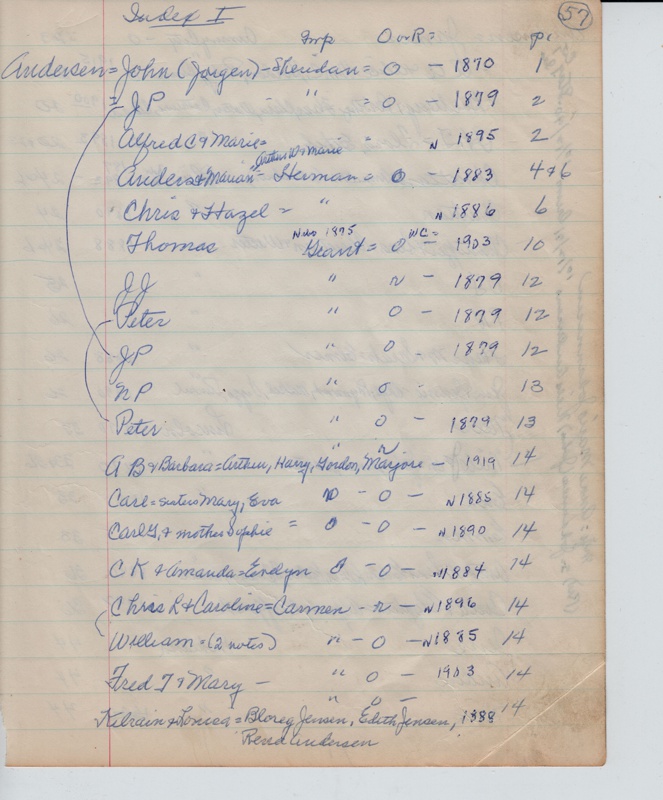 Index I
57
Twp O or R = p.
Andersen = John (Jorgen) - Sheridan = O - 1870 1
= J P - " = O - 1879 2
Alfred C & Marie = = N 1895 2
Arthur W & Marie
Anders & Marian = Herman = O - 1883 4 & 6
Chris & Hazel = " N 1886 6
Thomas Grant = O - 1903 10
J J " N - 1879 12
Peter " O - 1879 12
J P " O - 1879 12
N P " O - 13
Peter " O - 1879 13
A B & Barbara = Arthur, Harry, Gordon, Marjore - 1919 14
Carl = sisters Mary, Eva - O - N 1885 14
Carl G. & mother Sophie = O - O - N 1890 14
C K & Amanda = Evelyn O - O - N 1884 14
Chris L & Caroline = Carmen - N - N 1896 14
William = (2 notes) " - O - N 1885 14
Fred T & Mary - " O - 1903 14
" O -
Kilrain & = Jensen, Edith Jensen, 1888 14
Andersen